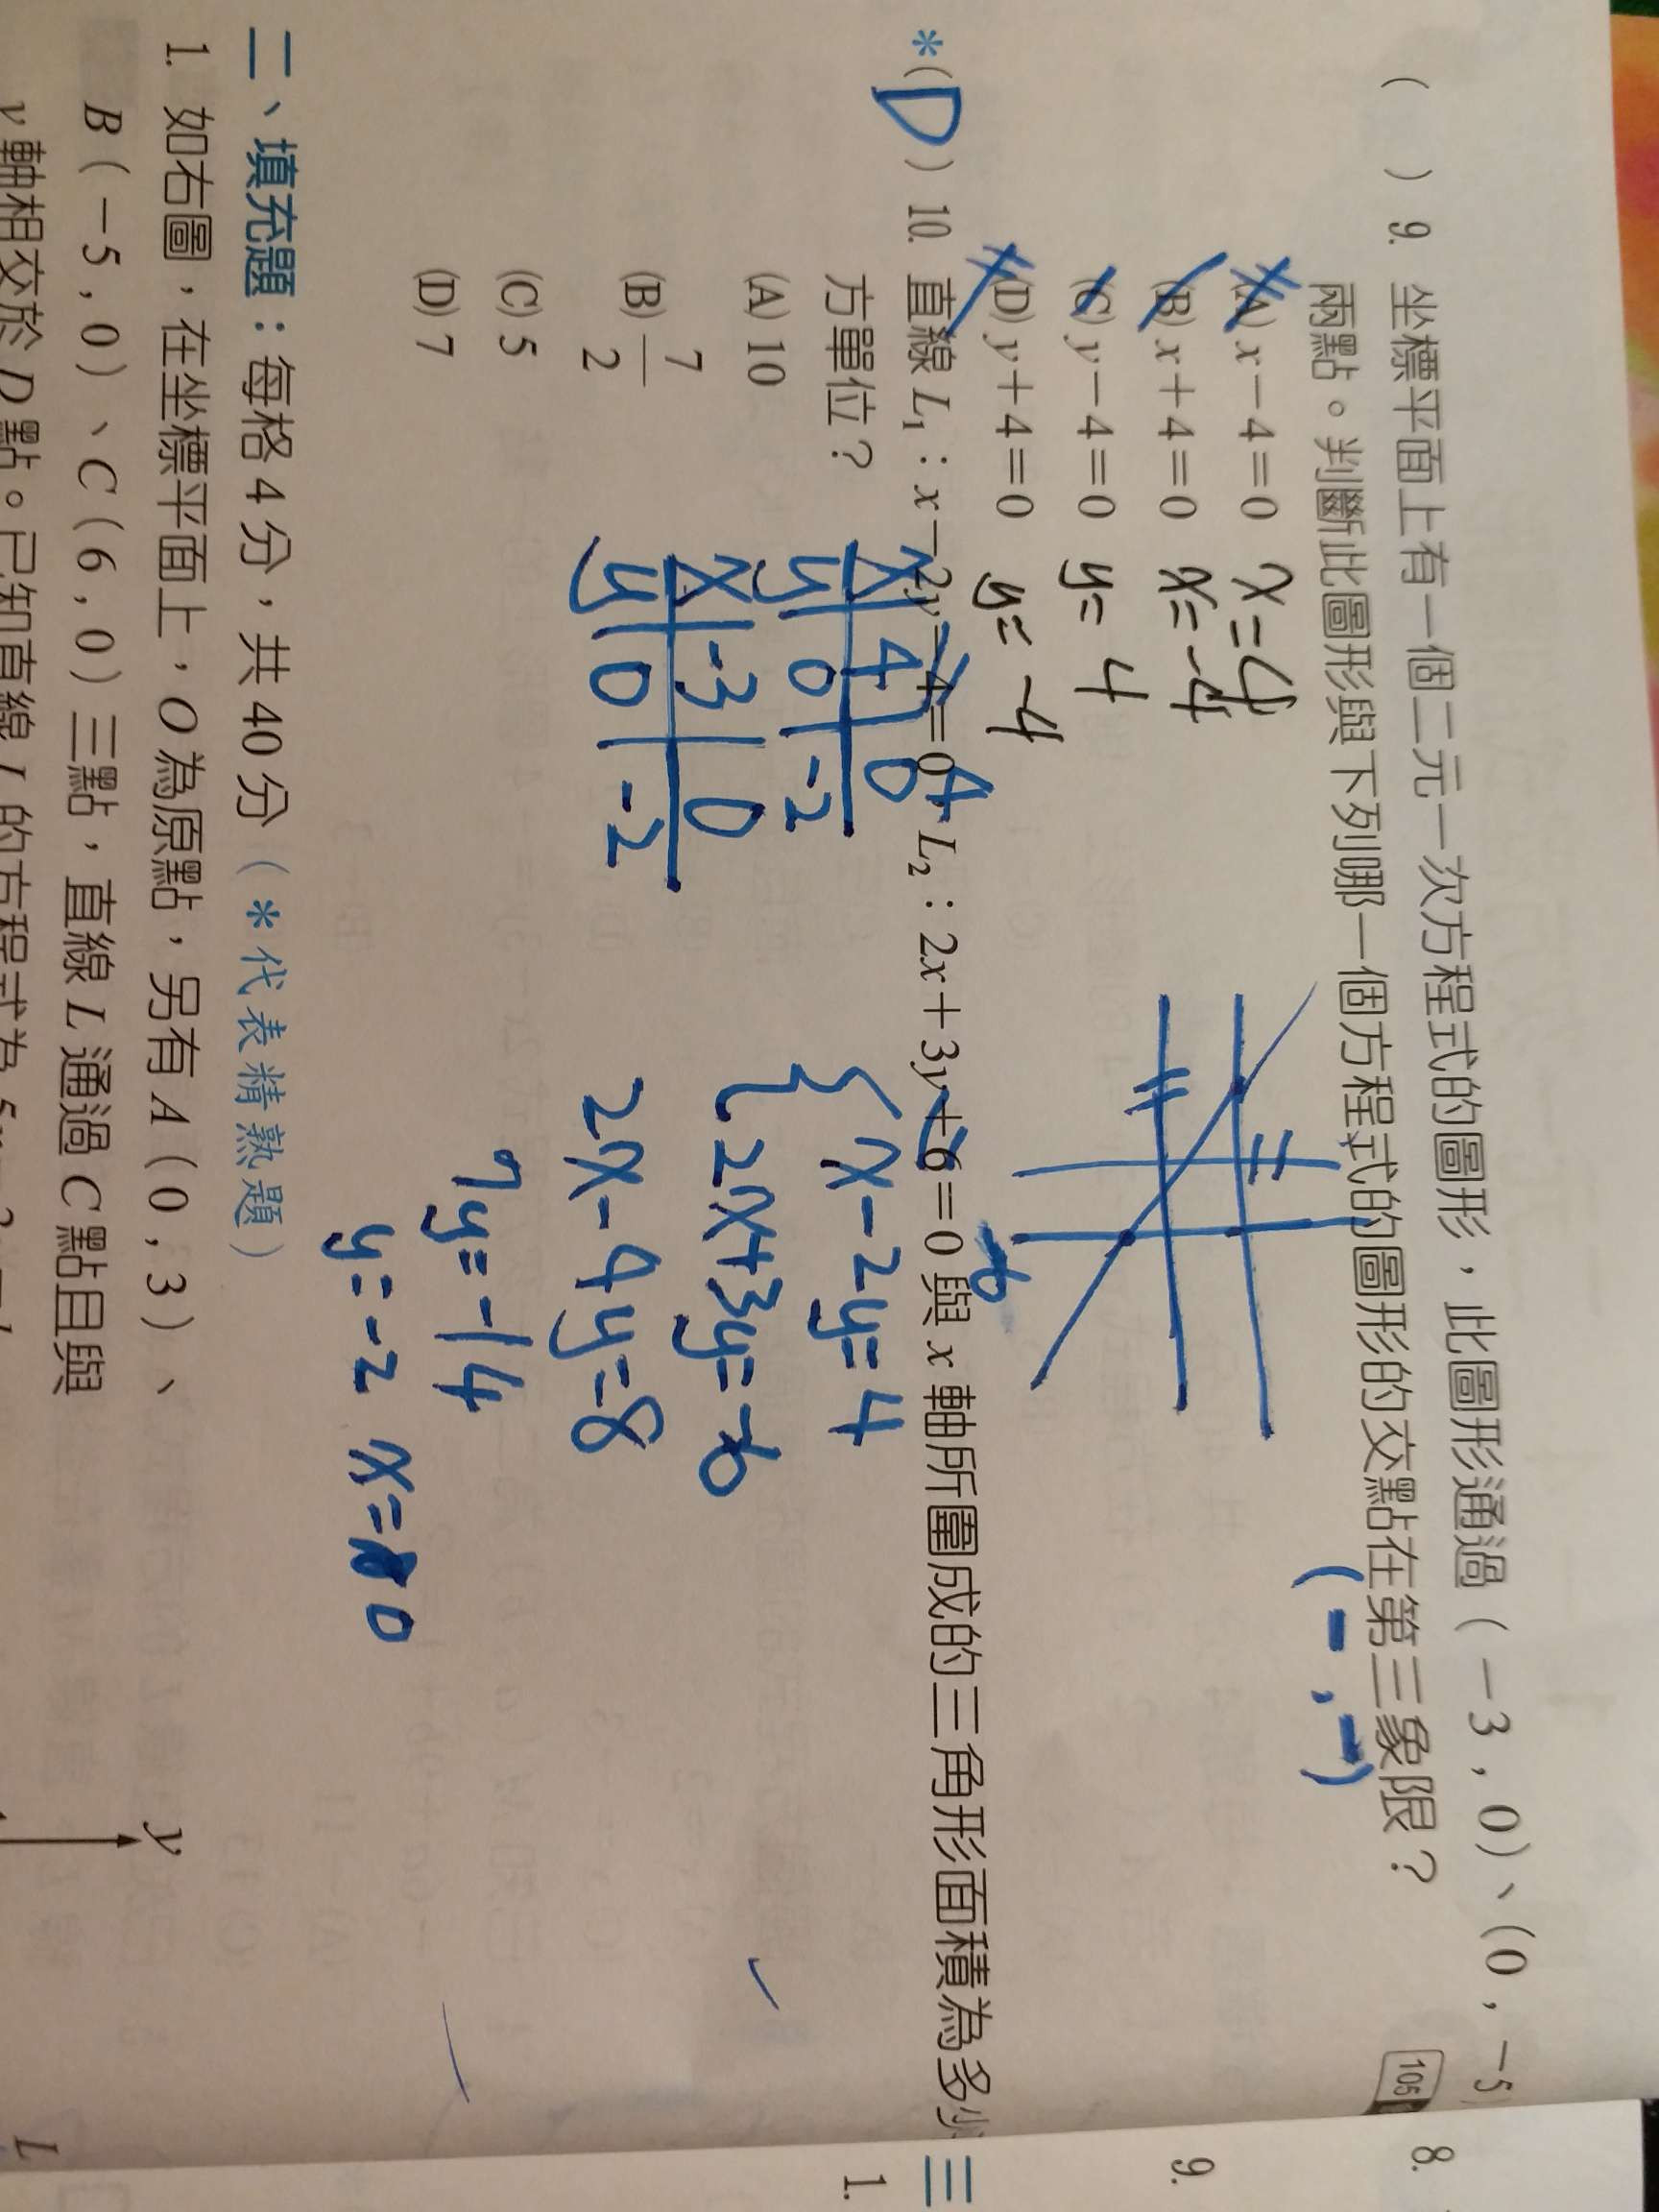 ( ) 9. 坐標平面上有一個二元一次方程式的圖形，此圖形通過（－3，0）、（0，－5）
兩點。判斷此圖形與下列哪一個方程式的圖形的交點在第三象限？
105
(－,－)
(A) x－4＝0 x=4
(B) x＋4＝0 x=-4
(C) y－4＝0 y=4
(D) y＋4＝0 y=-4
*(D) 10. 直線 L₁：x－2y－4＝0、L₂：2x＋3y＋6＝0 與 x 軸所圍成的三角形面積為多少
方單位？
4
-6
(A) 10
(B) 7/2
(C) 5
(D) 7
x 4 0
y 0 -2
x -3 0
y 0 -2
{ x-2y=4
2x+3y=-6
2x-4y=8
7y=-14
y=-2 x=0
二、填充題：每格 4 分，共 40 分（*代表精熟題）
1. 如右圖，在坐標平面上，O 為原點，另有 A（0，3）、
B（－5，0）、C（6，0）三點，直線 L 通過 C 點且與
y 軸相交於 D 點。已知直線 L 的方程式為
y
L
8.
9.
三
1.